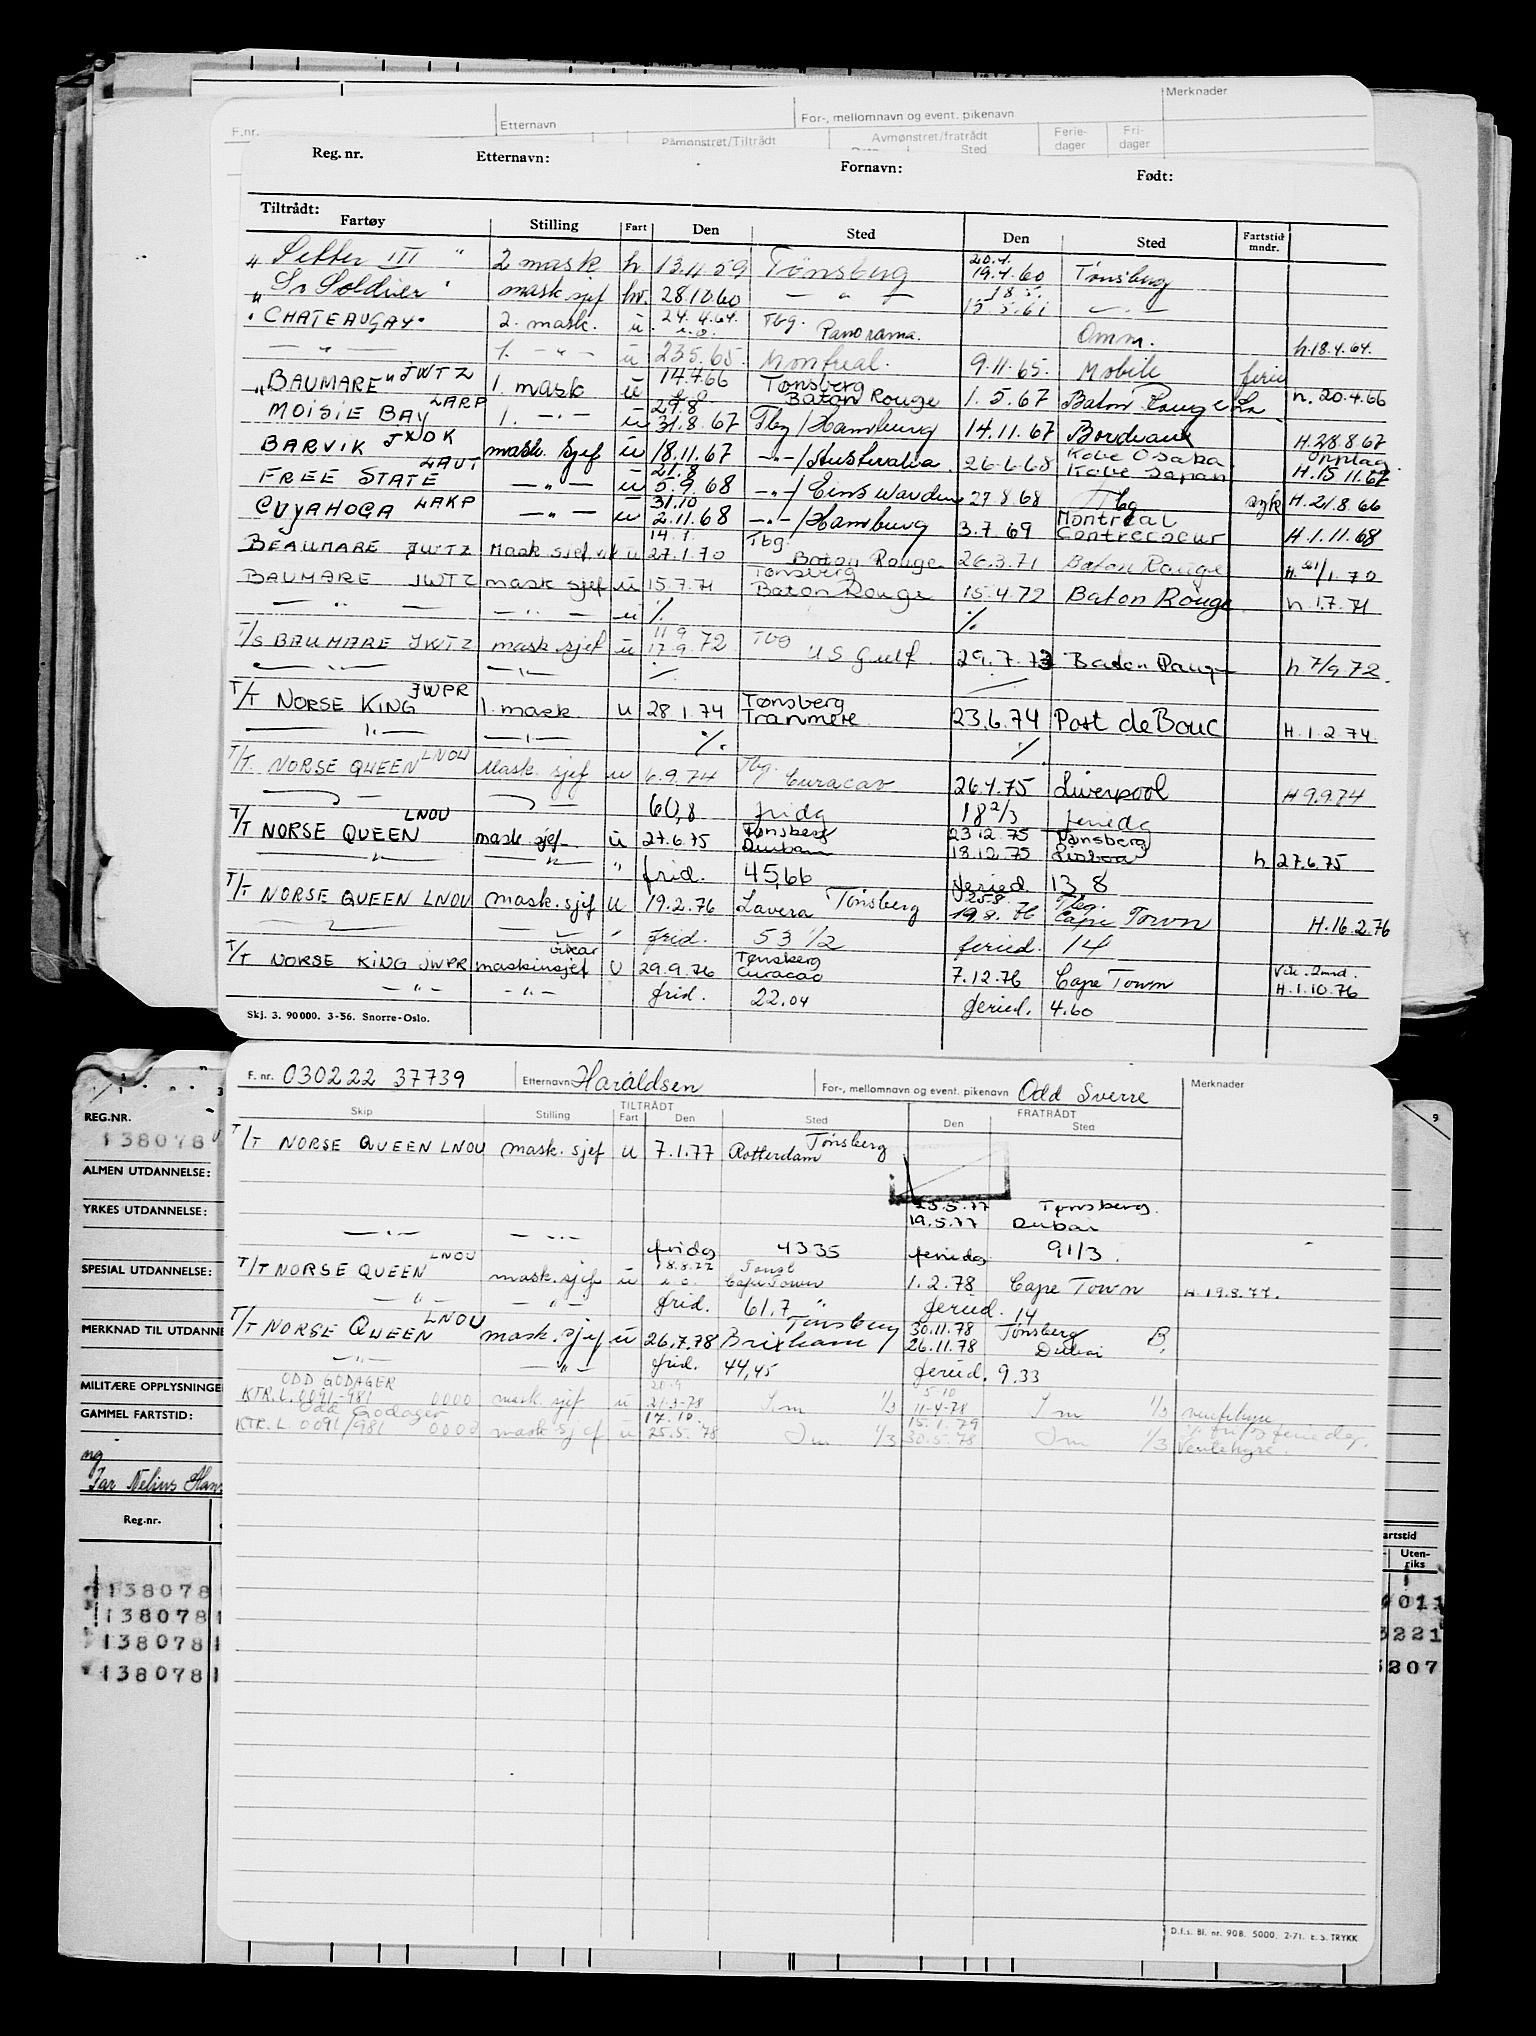 Merknader
F.nr. Etternavn For-, mellomnavn og event. pikenavn
Påmønstret/Tiltrådt Avmønstret/fratrådt Ferie-dager Fri-dager
Sted
Reg. nr. Etternavn: Fornavn: Født:
Tiltrådt:
Fartøy Stilling Fart Den Sted Den Sted Fartstid mndr.
20.4.
„ Setter III " 2 mask h 13.11.59 Tønsberg 19.4.60 Tønsberg
18.5.
„ So Soldier " mask sjef hv. 28.10.60 — " — 15.5.61 — " —
"CHATEAUGAY" 2. mask. u. 24.4.64. Tbg. Panorama. Omm. h.18.4.64.
— " — 1. — " — u 23.5.65. Montreal. 9.11.65. Mobile ferie
„BAUMARE" JWTZ 1. mask u 14.4.66 Tønsberg Baton Rouge 1.5.67 Baton Rouge La h. 20.4.66
MOISIE BAY LARP 1. — " — u 29.8 31.8.67 Tbg/Hamburg 14.11.67 Bordeaux H.28.8.67
BARVIK JXDK mask. sjef u 18.11.67 — " —/Australia 26.6.68 Kobe Osaka Kobe Japan Opptag. H.15.11.67
FREE STATE LAUT — " — u 21.8 5.9.68 — " —/Eins warden 27.8.68 Tbg syk H.21.8.66
CUYAHOGA LAKP — " — u 31.10 2.11.68 — " —/Hamburg 3.7.69 Montreal Contrecoeur H.1.11.68
BEAUMARE JWTZ Mask sjef vik u 14.1. 27.1.70 Tbg. Baton Rouge 26.3.71 Baton Rouge
BAUMARE JWTZ mask sjef u 15.7.71 Tønsberg Baton Rouge 15.4.72 Baton Rouge h 1.7.71
— " — — " — u % %
T/S BAUMARE JWTZ mask.sjef u 11.9 17.9.72 Tbg US Gulf 29.7.73 Baton Roug h 7/9.72.
— " — — " — % —
T/T NORSE KING JWPR 1. mask u 28.1.74 Tønsberg Tranmere 23.6.74 Port de Bouc H.1.2.74
— " — — " — % %
T/T. NORSE QUEEN LNOU Mask. sjef u 6.9.74 Tbg. Curacao 26.4.75 Liverpool H 9.9.74
— " — — " — 60,8 fridg 18 2/3 feriedg
T/T NORSE QUEEN LNOU mask. sjef u 27.6.75 Tønsberg Durban 23.12.75 18.12.75 Tønsberg Lisboa h 27.6.75
— " — — " — " frid. 45,66 feried 13 8
T/T NORSE QUEEN LNOU mask.sjef u 19.2.76 Lavera Tønsberg 25.8. 19.8.76 Tbg. Cape Town H.16.2.76
— " — — " — " frid. 53 1/2 feried. 14
T/T NORSE KING JWPR vikar maskinsjef U 29.9.76 Tønsberg Curacao 7.12.76 Cape Town H.1.10.76
— " — — " — frid. 22.04 feried. 4.60
Skj. 3. 90 000. 3-56. Snorre-Oslo.
F. nr. 030222 37739 Etternavn Haraldsen For-, mellomnavn og event. pikenavn Odd Sverre Merknader
TILTRÅDT FRATRÅDT
Skip Stilling Fart Den Sted Den Sted
T/T NORSE QUEEN LNOU mask. sjef u 7.1.77 Rotterdam Tønsberg
25.5.77 Tønsberg.
19.5.77 Dubai
— " — — " — fridg 43 35 feriedg 9 1/3.
T/T NORSE QUEEN LNOU mask. sjef u 18.8.77 Cape Town 1.2.78 Cape Town H. 19.8.77.
— " — — " — frid. 61.7 " feried. 14
T/T NORSE QUEEN LNOU mask. sjef u 26.7.78 Brixham/Tønsberg 30.11.78 26.11.78 Tønsberg Dubai B.
— " — — " — frid. 44,45 feried. 9.33
ODD GODAGER
KTR.L. 0091-981 0000 mask. sjef u 20.9 21-3-78 1/3 5.10 11-4-78 1/3
Odd Godager
KTR.L. 0091/981 0000 mask sjef u 17.10. 25.5.78 1/3 15.1.79 30.5.78 1/3 Ventehyre
D.f.s. Bl. nr. 90B. 5000. 2-71. E.S. TRYKK
REG.NR.
138078
ALMEN UTDANNELSE:
YRKES UTDANNELSE:
SPESIAL UTDANNELSE:
MERKNAD TIL UTDANNE
MILITÆRE OPPLYSNINGE
GAMMEL FARTSTID:
ng
Far Nelius Han
Reg.nr.
138078
138078
138078
138078
9
artstid
Uten-riks
011
3221
207